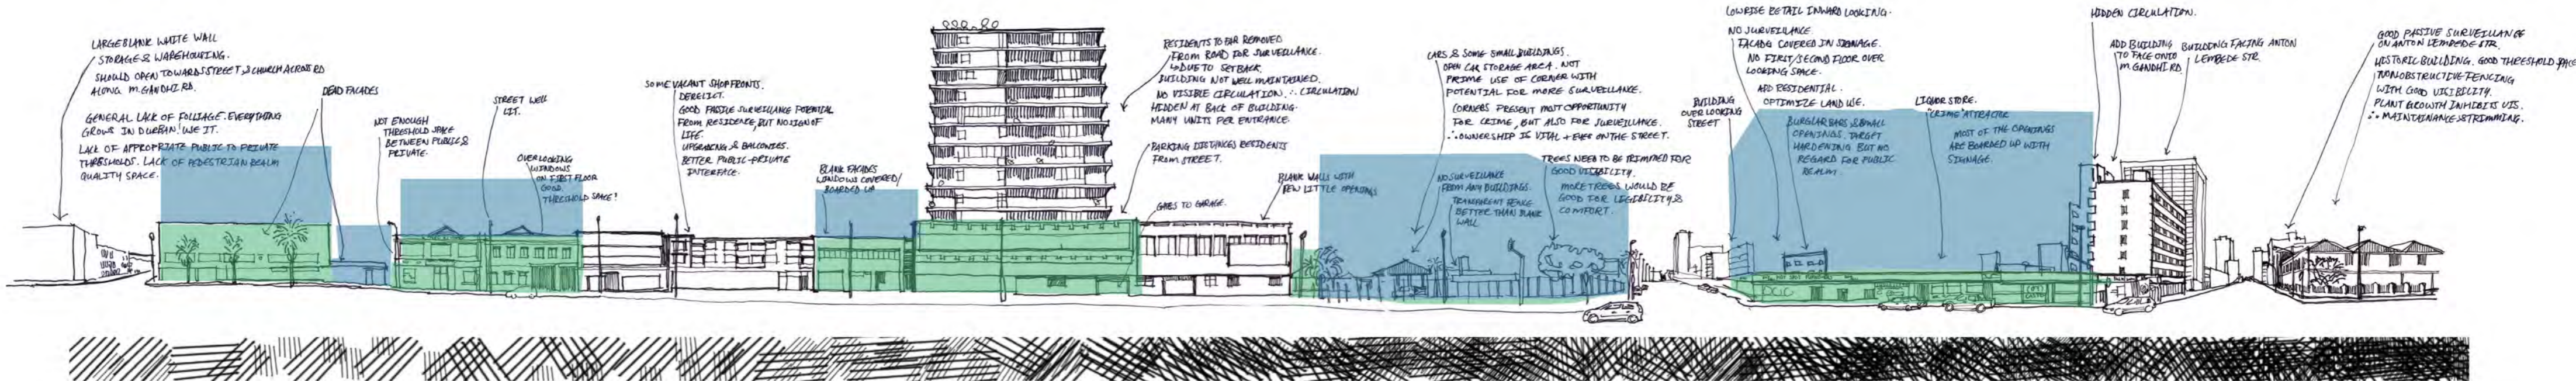 LARGE BLANK WHITE WALL
STORAGE & WAREHOUSING.
SHOULD OPEN TOWARDS STREET & CHURCH ACROSS RD
ALONG M. GANDHI RD.
GENERAL LACK OF FOLIAGE. EVERYTHING
GROWS IN DURBAN! USE IT.
LACK OF APPROPRIATE PUBLIC TO PRIVATE
THRESHOLDS. LACK OF PEDESTRIAN REALM
QUALITY SPACE.
DEAD FACADES
NOT ENOUGH
THRESHOLD SPACE
BETWEEN PUBLIC &
PRIVATE.
STREET WELL
LIT.
OVERLOOKING
WINDOWS
ON FIRST FLOOR
GOOD.
THRESHOLD SPACE!
SOME VACANT SHOPFRONTS.
DERELICT.
GOOD PASSIVE SURVEILLANCE POTENTIAL
FROM RESIDENCE, BUT NO SIGN OF
LIFE.
UPGRADING & BALCONIES.
BETTER PUBLIC-PRIVATE
INTERFACE.
BLANK FACADES
WINDOWS COVERED/
BOARDED UP
RESIDENTS TO FAR REMOVED
FROM ROAD FOR SURVEILLANCE.
DUE TO SETBACK.
BUILDING NOT WELL MAINTAINED.
NO VISIBLE CIRCULATION. ∴ CIRCULATION
HIDDEN AT BACK OF BUILDING.
MANY UNITS PER ENTRANCE.
PARKING DISTANCES RESIDENTS
FROM STREET.
GATES TO GARAGE.
BLANK WALLS WITH
FEW LITTLE OPENINGS
CARS & SOME SMALL BUILDINGS.
OPEN CAR STORAGE AREA. NOT
PRIME USE OF CORNER WITH
POTENTIAL FOR MORE SURVEILLANCE.
CORNERS PRESENT MOST OPPORTUNITY
FOR CRIME, BUT ALSO FOR SURVEILLANCE.
∴ OWNERSHIP IS VITAL + EYES ON THE STREET.
NO SURVEILLANCE
FROM ANY BUILDINGS.
TRANSPARENT FENCE
BETTER THAN BLANK
WALL
TREES NEED TO BE TRIMMED FOR
GOOD VISIBILITY.
MORE TREES WOULD BE
GOOD FOR LEGIBILITY &
COMFORT.
BUILDING
OVERLOOKING
STREET
LOWRISE RETAIL INWARD LOOKING.
NO SURVEILLANCE.
FACADE COVERED IN SIGNAGE.
NO FIRST/SECOND FLOOR OVER
LOOKING SPACE.
ADD RESIDENTIAL.
OPTIMIZE LAND USE.
BURGLAR BARS & SMALL
OPENINGS. TARGET
HARDENING BUT NO
REGARD FOR PUBLIC
REALM.
LIQUOR STORE.
"CRIME" ATTRACTOR
MOST OF THE OPENINGS
ARE BOARDED UP WITH
SIGNAGE.
HIDDEN CIRCULATION.
ADD BUILDING
TO FACE ONTO
M. GANDHI RD.
BUILDING FACING ANTON
LEMBEDE STR.
GOOD PASSIVE SURVEILLANCE
ON ANTON LEMBEDE STR.
HISTORIC BUILDING. GOOD THRESHOLD SPACE
NONOBSTRUCTIVE FENCING
WITH GOOD VISIBILITY.
PLANT GROWTH INHIBITS VIS.
∴ MAINTAINANCE & TRIMMING.